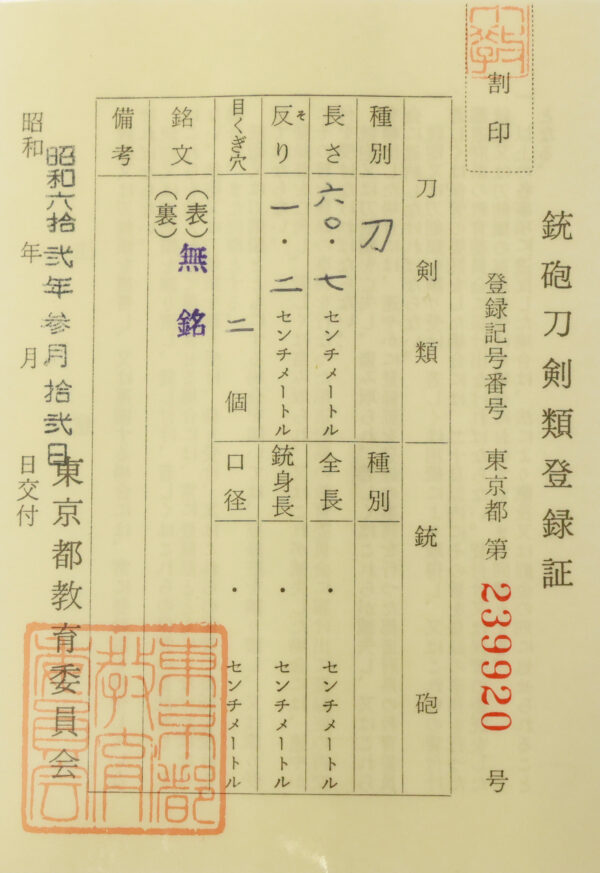 銃砲刀剣類登録証
割印
登録記号番号 東京都 第 239920 号
刀剣類
種別 刀
長さ 六〇・七 センチメートル
反り そ 一・二 センチメートル
目くぎ穴 二 個
銘文 (表) 無銘
(裏)
備考
銃砲
種別
全長 ・ センチメートル
銃身長 ・ センチメートル
口径 ・ センチメートル
昭和 年 月 日交付
昭和六拾弐年参月拾弐日
東京都教育委員会
東京都教育委員会